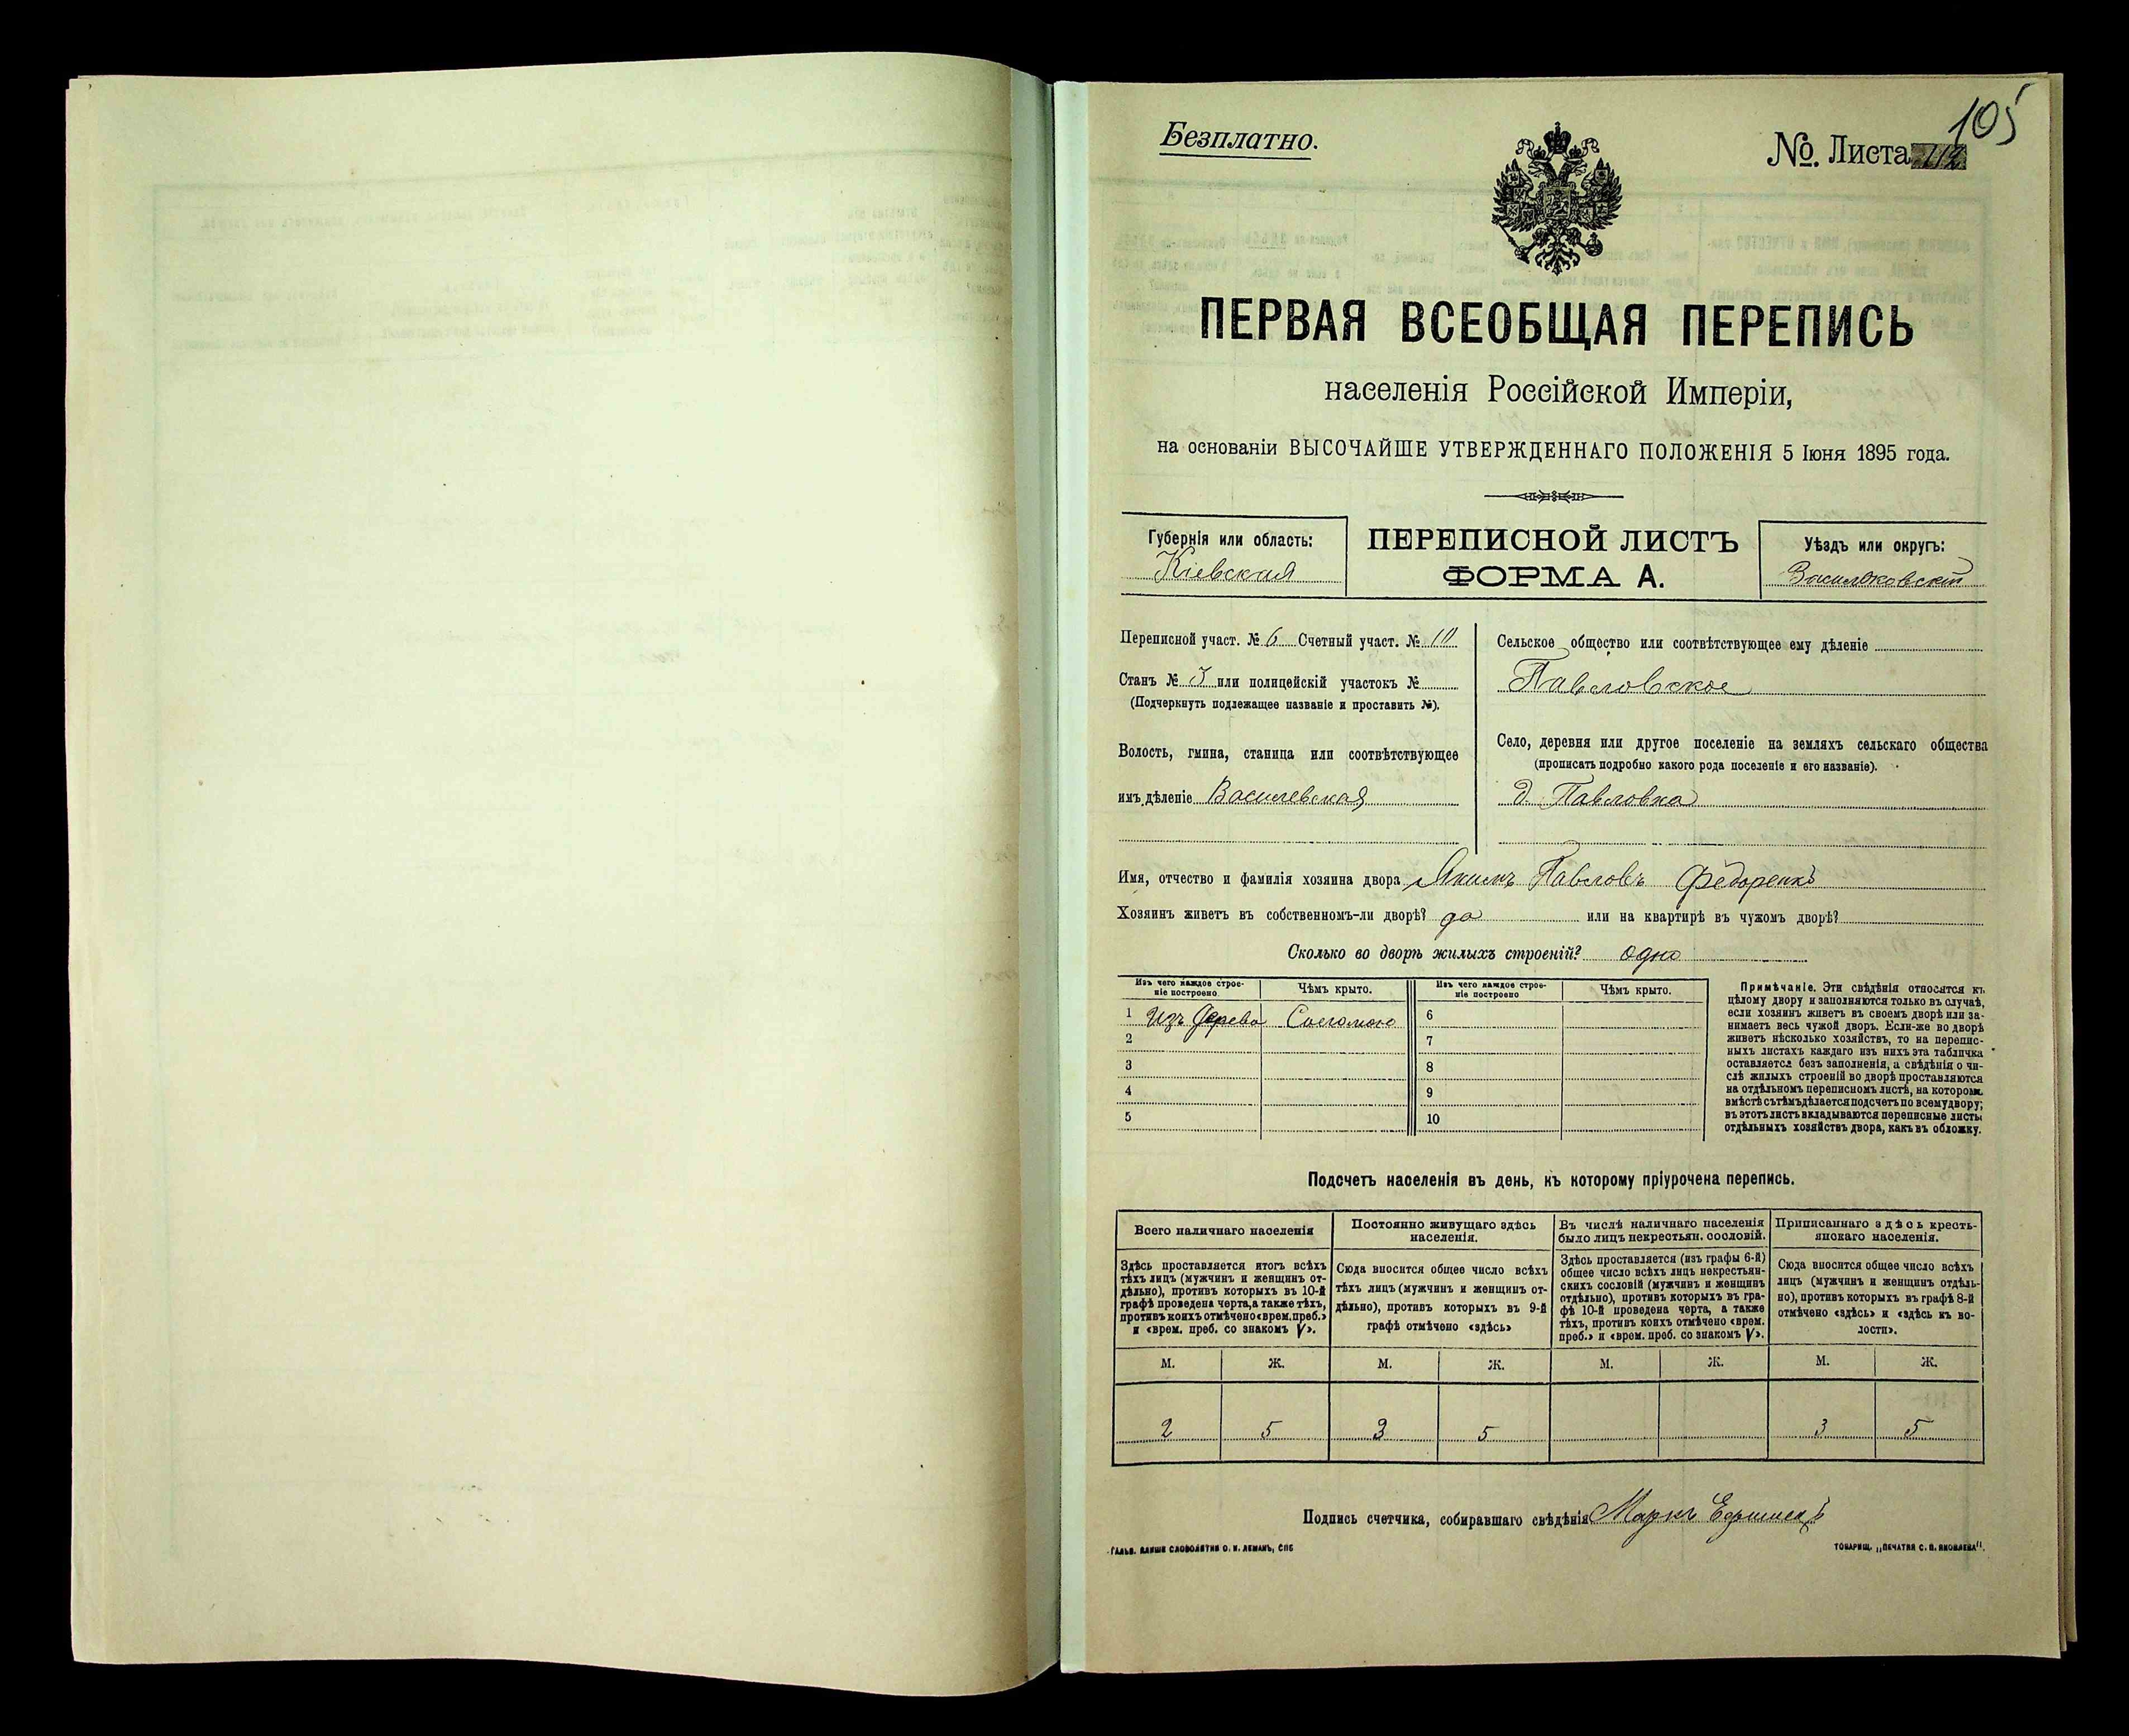 105
Безплатно.
№. Листа
ПЕРВАЯ ВСЕОБЩАЯ ПЕРЕПИСЬ
населенія Россійской Имперіи,
на основаніи ВЫСОЧАЙШЕ УТВЕРЖДЕННАГО ПОЛОЖЕНІЯ 5 Іюня 1895 года.
Губернія или область:
Кіевская
ПЕРЕПИСНОЙ ЛИСТЪ
ФОРМА А.
Уѣздъ или округъ:
Васильковскій
Переписной участ. № 6 Счетный участ. № 10
Станъ № 3 или полицейскій участокъ №
(Подчеркнуть подлежащее названіе и проставить №).
Волость, гмина, станица или соотвѣтствующее
имъ дѣленіе Василевская
Сельское общество или соотвѣтствующее ему дѣленіе
Павловское
Село, деревня или другое поселеніе на земляхъ сельскаго общества
(прописать подробно какого рода поселеніе и его названіе).
д. Павловка
Имя, отчество и фамилія хозяина двора Якимъ Павловъ Федоренко
Хозяинъ живетъ въ собственномъ-ли дворѣ? да или на квартирѣ въ чужомъ дворѣ?
Сколько во дворѣ жилыхъ строеній? одно
Изъ чего каждое строе-
ніе построено
Чѣмъ крыто.
Изъ чего каждое строе-
ніе построено
Чѣмъ крыто.
1 Изъ дерева Соломою 6
2 7
3 8
4 9
5 10
Примѣчаніе. Эти свѣдѣнія относятся къ
цѣлому двору и заполняются только въ случаѣ,
если хозяинъ живетъ въ своемъ дворѣ или за-
нимаетъ весь чужой дворъ. Если-же во дворѣ
живетъ нѣсколько хозяйствъ, то на перепис-
ныхъ листахъ каждаго изъ нихъ эта табличка
оставляется безъ заполненія, а свѣдѣнія о чи-
слѣ жилыхъ строеній во дворѣ проставляются
на отдѣльномъ переписномъ листѣ, на которомъ
вмѣстѣ съ тѣмъ дѣлается подсчетъ по всему двору;
въ этотъ листъ вкладываются переписные листы
отдѣльныхъ хозяйствъ двора, какъ въ обложку.
Подсчетъ населенія въ день, къ которому пріурочена перепись.
Всего наличнаго населенія
Здѣсь проставляется итогъ всѣхъ
тѣхъ лицъ (мужчинъ и женщинъ от-
дѣльно), противъ которыхъ въ 10-й
графѣ проведена черта, а также тѣхъ,
противъ коихъ отмѣчено «врем. преб.»
и «врем. преб. со знакомъ V».
Постоянно живущаго здѣсь
населенія.
Сюда вносится общее число всѣхъ
тѣхъ лицъ (мужчинъ и женщинъ от-
дѣльно), противъ которыхъ въ 9-й
графѣ отмѣчено «здѣсь»
Въ числѣ наличнаго населенія
было лицъ некрестьян. сословій.
Здѣсь проставляется (изъ графы 6-й)
общее число всѣхъ лицъ некрестьян-
скихъ сословій (мужчинъ и женщинъ
отдѣльно), противъ которыхъ въ гра-
фѣ 10-й проведена черта, а также
тѣхъ, противъ коихъ отмѣчено «врем.
преб.» и «врем. преб. со знакомъ V».
Приписаннаго здѣсь кресть-
янскаго населенія.
Сюда вносится общее число всѣхъ
лицъ (мужчинъ и женщинъ отдѣль-
но), противъ которыхъ въ графѣ 8-й
отмѣчено «здѣсь» и «здѣсь къ во-
лости».
М. Ж. М. Ж. М. Ж. М. Ж.
2 5 3 5 3 5
Подпись счетчика, собиравшаго свѣдѣнія Маркъ
ГАЛЬВ. КЛИШЕ СЛОВОЛИТНИ О. И. ЛЕМАНЪ, СПБ
ТОВАРИЩ. „ПЕЧАТНЯ С. П. ЯКОВЛЕВА".